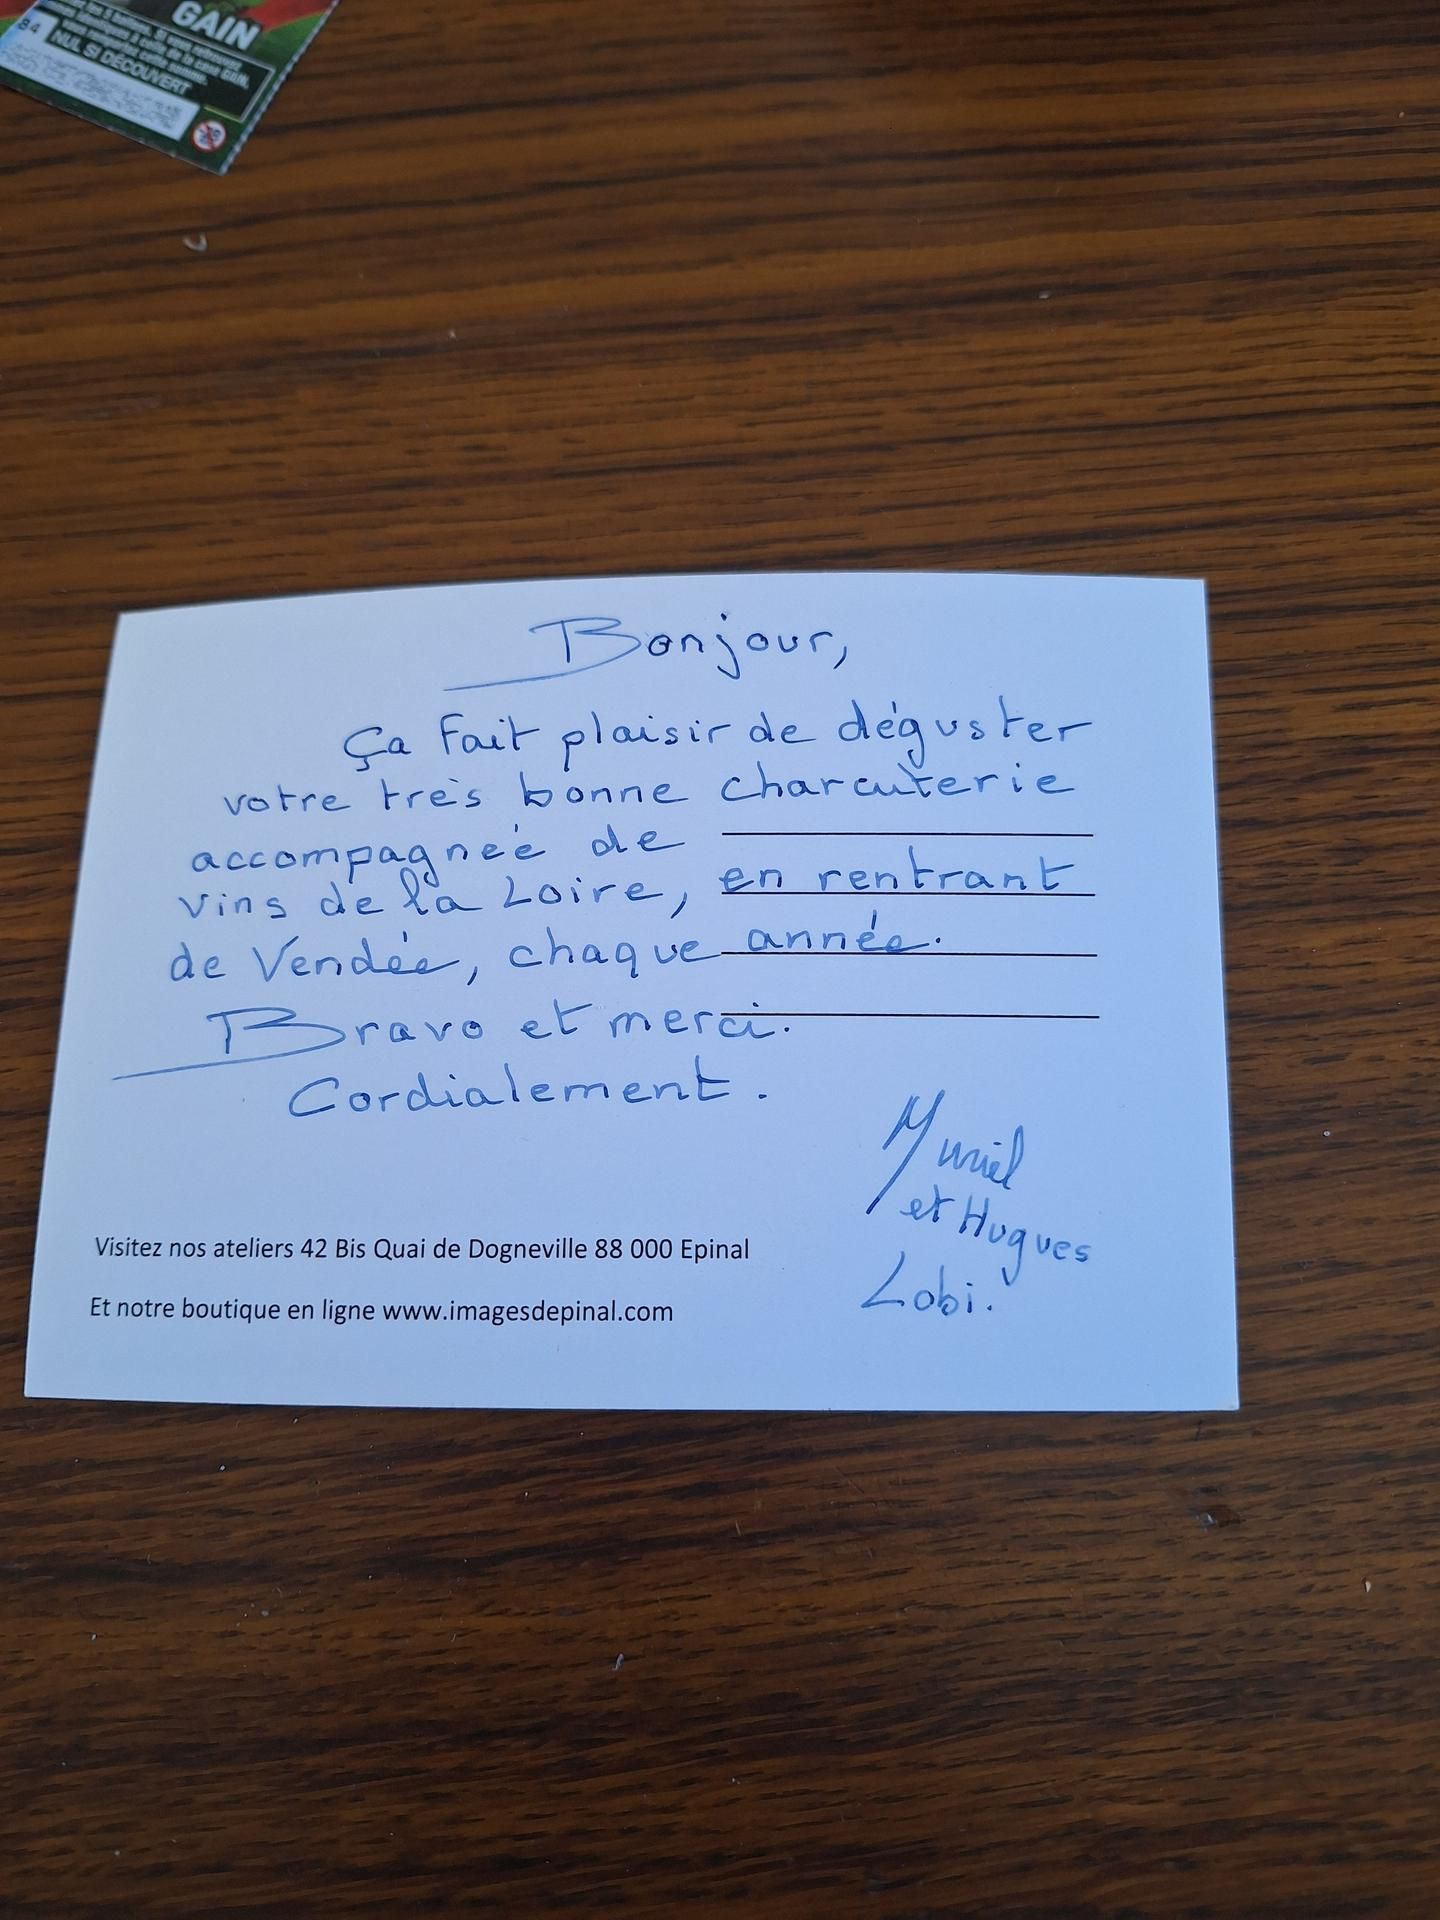 GAIN
NUL SI DÉCOUVERT
84
Bonjour,
Ça fait plaisir de déguster
votre très bonne charcuterie
accompagnéé de
vins de la Loire, en rentrant
de Vendée, chaque année.
Bravo et merci.
Cordialement.
Muriel
et Hugues
Lobi.
Visitez nos ateliers 42 Bis Quai de Dogneville 88 000 Epinal
Et notre boutique en ligne www.imagesdepinal.com